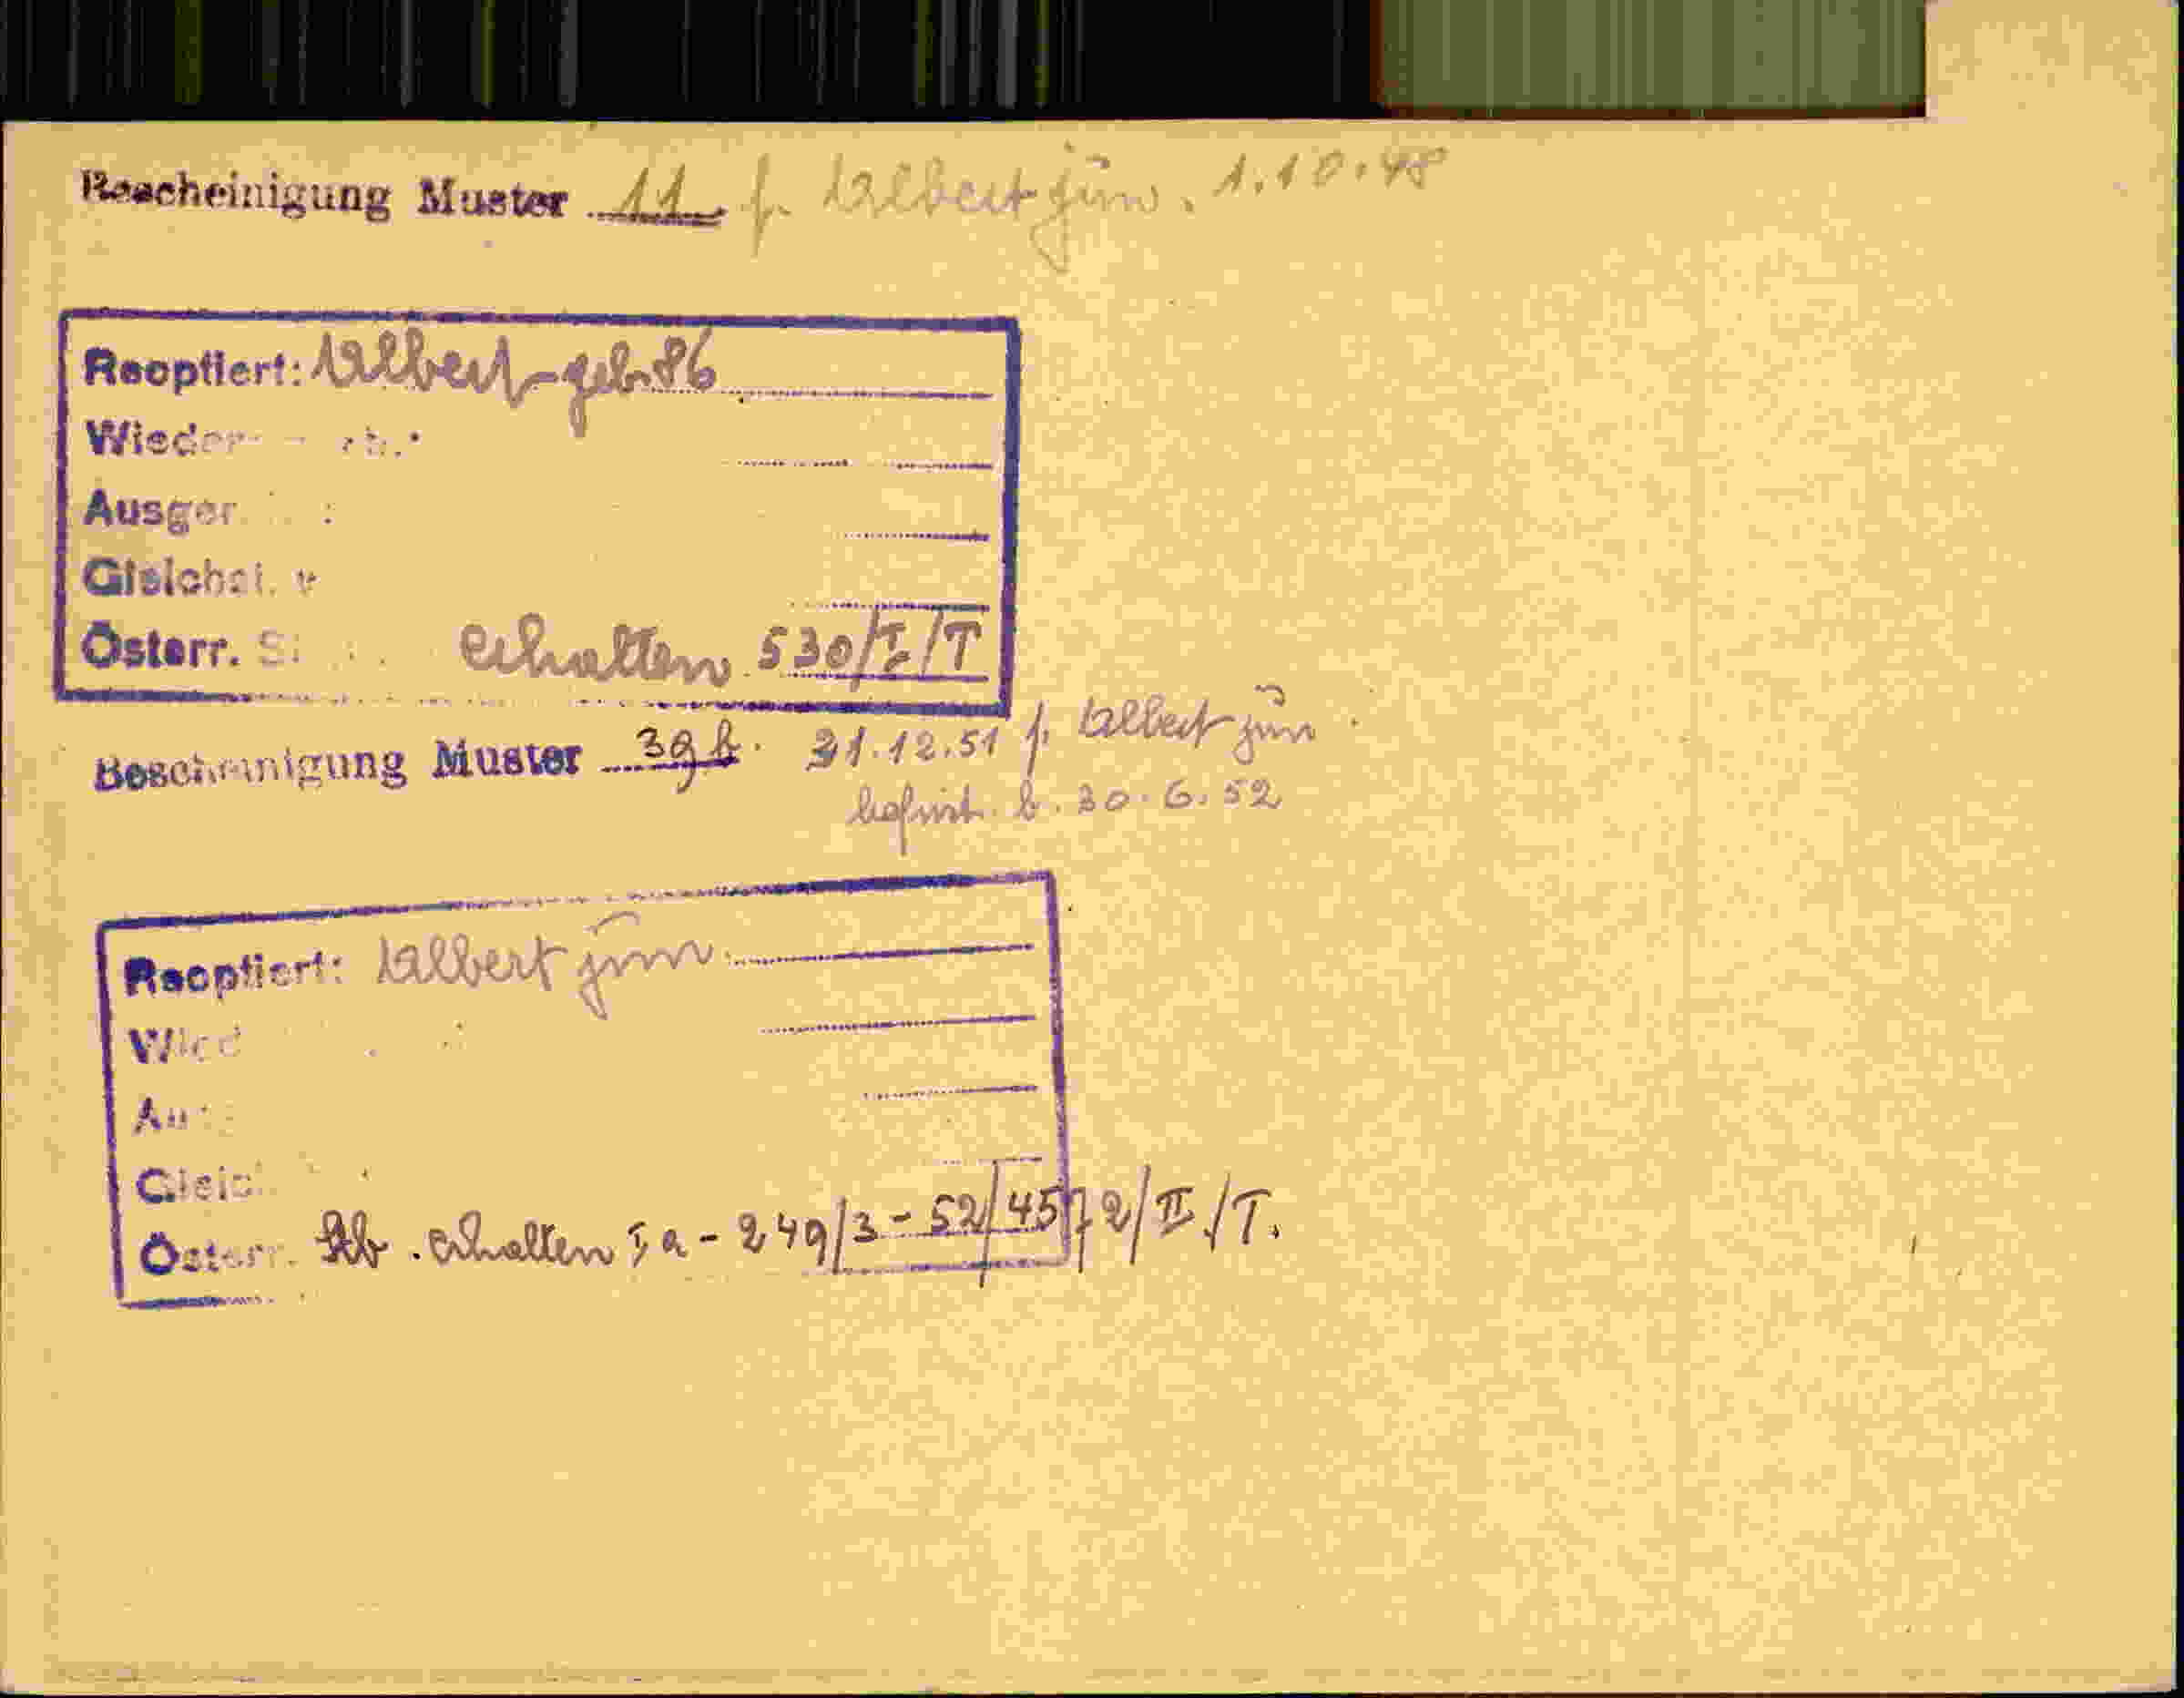 Bescheinigung Muster 11 f. Albert jun. 1.10.48
Reoptiert: Albert geb. 86
Wieder
Ausger
Gleichst.
Österr. S erhalten 530/I/T
Bescheinigung Muster 39 b. 31.12.51 f. Albert jun
befrist. b. 30.6.52
Reoptiert: Albert jun
Wied
Aus
Gleic
Österr. Stb. erhalten I a - 249/3 - 52/4572/II/T.